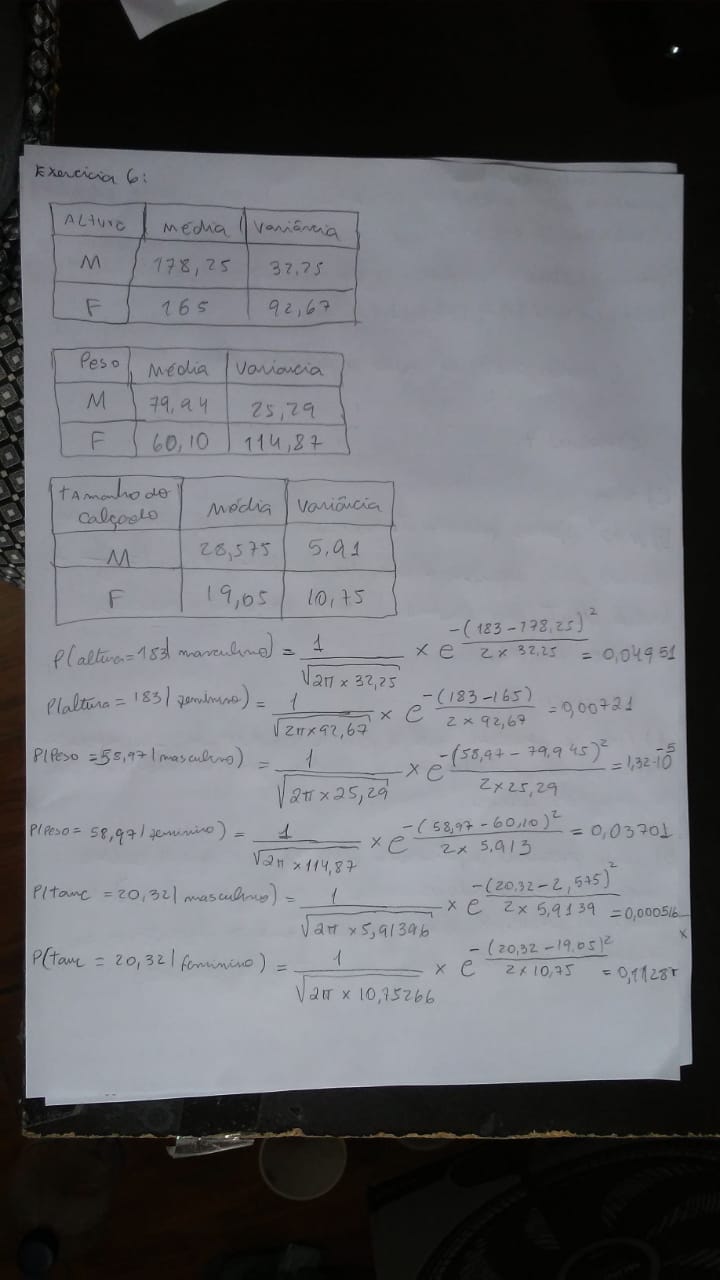 Exercício 6:
Altura Média Variância
M 178,25 32,25
F 165 92,67
Peso Média Variancia
M 79,94 25,29
F 60,10 114,87
tamanho do calçado Média Variância
M 28,575 5,91
F 19,05 10,75
P(altura=183| masculino) = 1/√(2π × 32,25) × e^(-(183-178,25)²/(2 × 32,25)) = 0,04951
P(altura = 183| feminino) = 1/√(2π×92,67) × e^(-(183-165)/(2 × 92,67)) = 0,00721
P(Peso = 58,97| masculino) = 1/√(2π × 25,29) × e^(-(58,97-79,945)²/(2×25,29)) = 1,32·10^-5
P(Peso = 58,97| feminino) = 1/√(2π × 114,87) × e^(-(58,97-60,10)²/(2× 5,913)) = 0,03701
P(tanc = 20,32| masculino) = 1/√(2π × 5,91396) × e^(-(20,32-2,575)²/(2× 5,9139)) = 0,000516
×
P(tanc = 20,32| feminino) = 1/√(2π × 10,75266) × e^(-(20,32-19,05)²/(2×10,75)) =